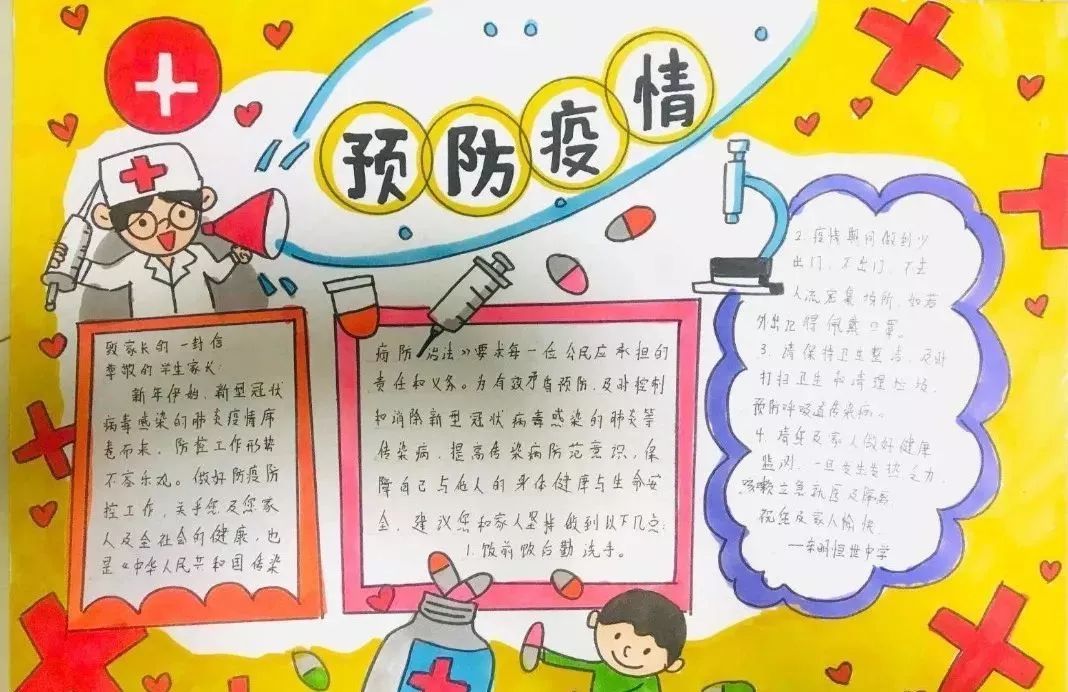 预防疫情
致家长的一封信
尊敬的学生家长:
新年伊始，新型冠状
病毒感染的肺炎疫情席
卷而来，防控工作形势
不容乐观。做好防疫防
控工作，关乎您及您家
人及全社会的健康，也
是《中华人民共和国传染
病防治法》要求每一位公民应承担的
责任和义务。为有效预防，及时控制
和消除新型冠状病毒感染的肺炎等
传染病，提高传染病防范意识，保
障自己与他人的身体健康与生命安
全，建议您和家人坚持做到以下几点:
1.饭前饭后勤洗手。
2.疫情期间做到少
出门，不出门，不去
人流密集场所，如若
外出记得佩戴口罩。
3.请保持卫生整洁，及时
打扫卫生和清理垃圾，
预防呼吸道传染病。
4.请您及家人做好健康
监测，一旦发生发热乏力，
咳嗽立急就医及隔离
祝您及家人愉快
恒世中学